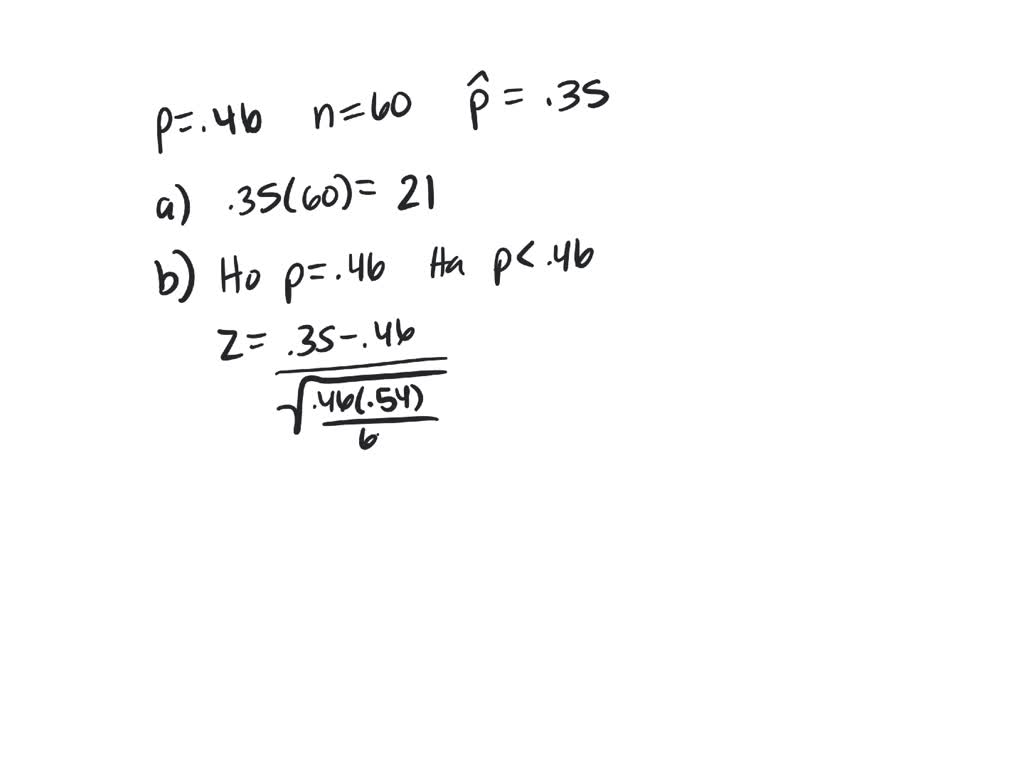 p=.46 n=60 p̂=.35
a) .35(60)=21
b) Ho p=.46 Ha p<.46
z= .35-.46
√ .46(.54)
6